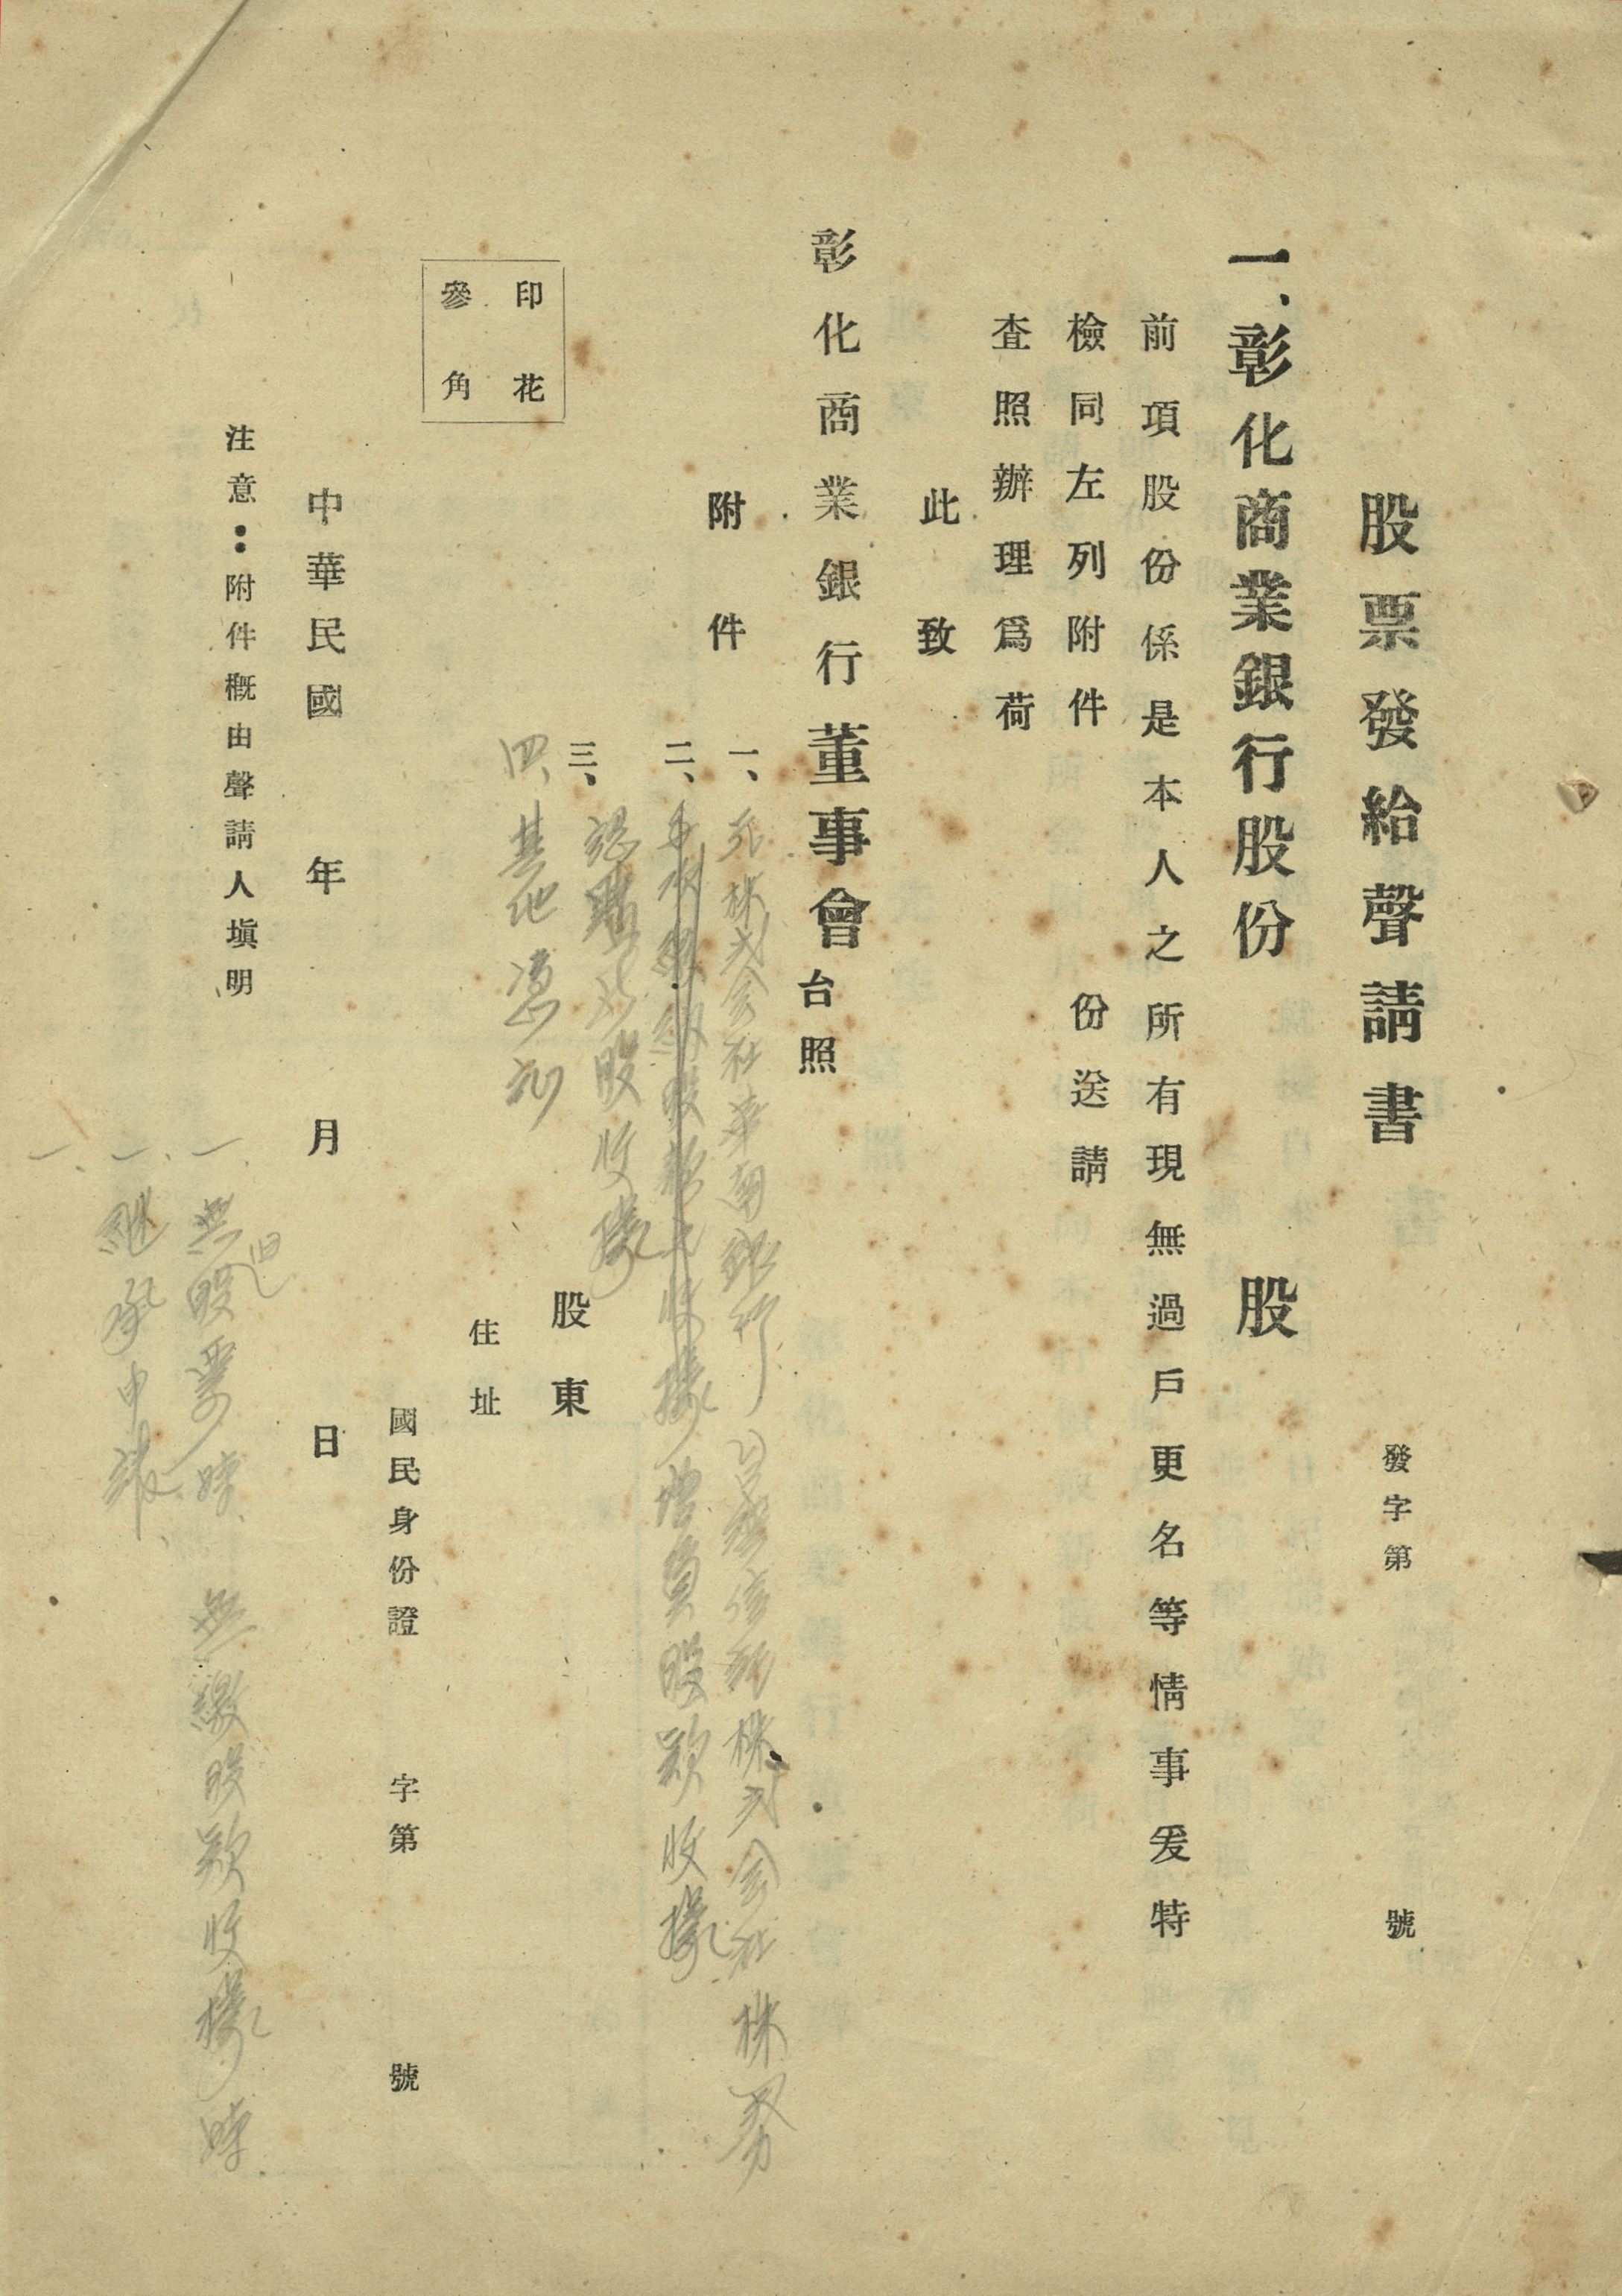 股票發給聲請書
發字第　號
一、彰化商業銀行股份　股
前項股份係是本人之所有現無過戶更名等情事爰特
檢同左列附件　份送請
查照辦理爲荷
此致
彰化商業銀行董事會台照
附件
一、元株式会社華南銀行　株式会社株券
二、股款之收據增資股款收據
三、認購北股收據
四、其他憑証
印花
參角
股東
住址
國民身份證　字第　號
中華民國　年　月　日
注意：附件概由聲請人塡明
一、無旧股票時　無繳股款收據時
一、継承申請
一、